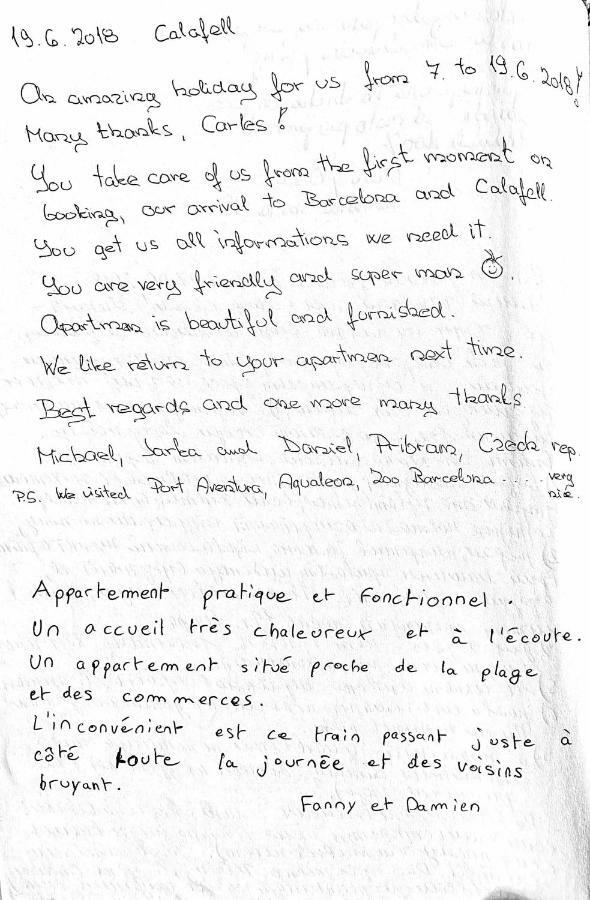 19.6.2018 Calafell
An amazing holiday for us from 7. to 19.6.2018!
Many thanks, Carles!
You take care of us from the first moment on
booking, our arrival to Barcelona and Calafell.
You get us all informations we need it.
You are very friendly and super man ☺.
Apartmen is beautiful and furnished.
We like return to your apartmen next time.
Best regards and one more many thanks
Michael, Jarka and Daniel, Pribram, Czech rep.
P.S. We visited Port Aventura, Aqualeon, zoo Barcelona .... very
nice.
Appartement pratique et fonctionnel.
Un accueil très chaleureux et à l'écoute.
Un appartement situé proche de la plage
et des commerces.
L'inconvénient est ce train passant juste à
côté toute la journée et des voisins
bruyant.
Fanny et Damien